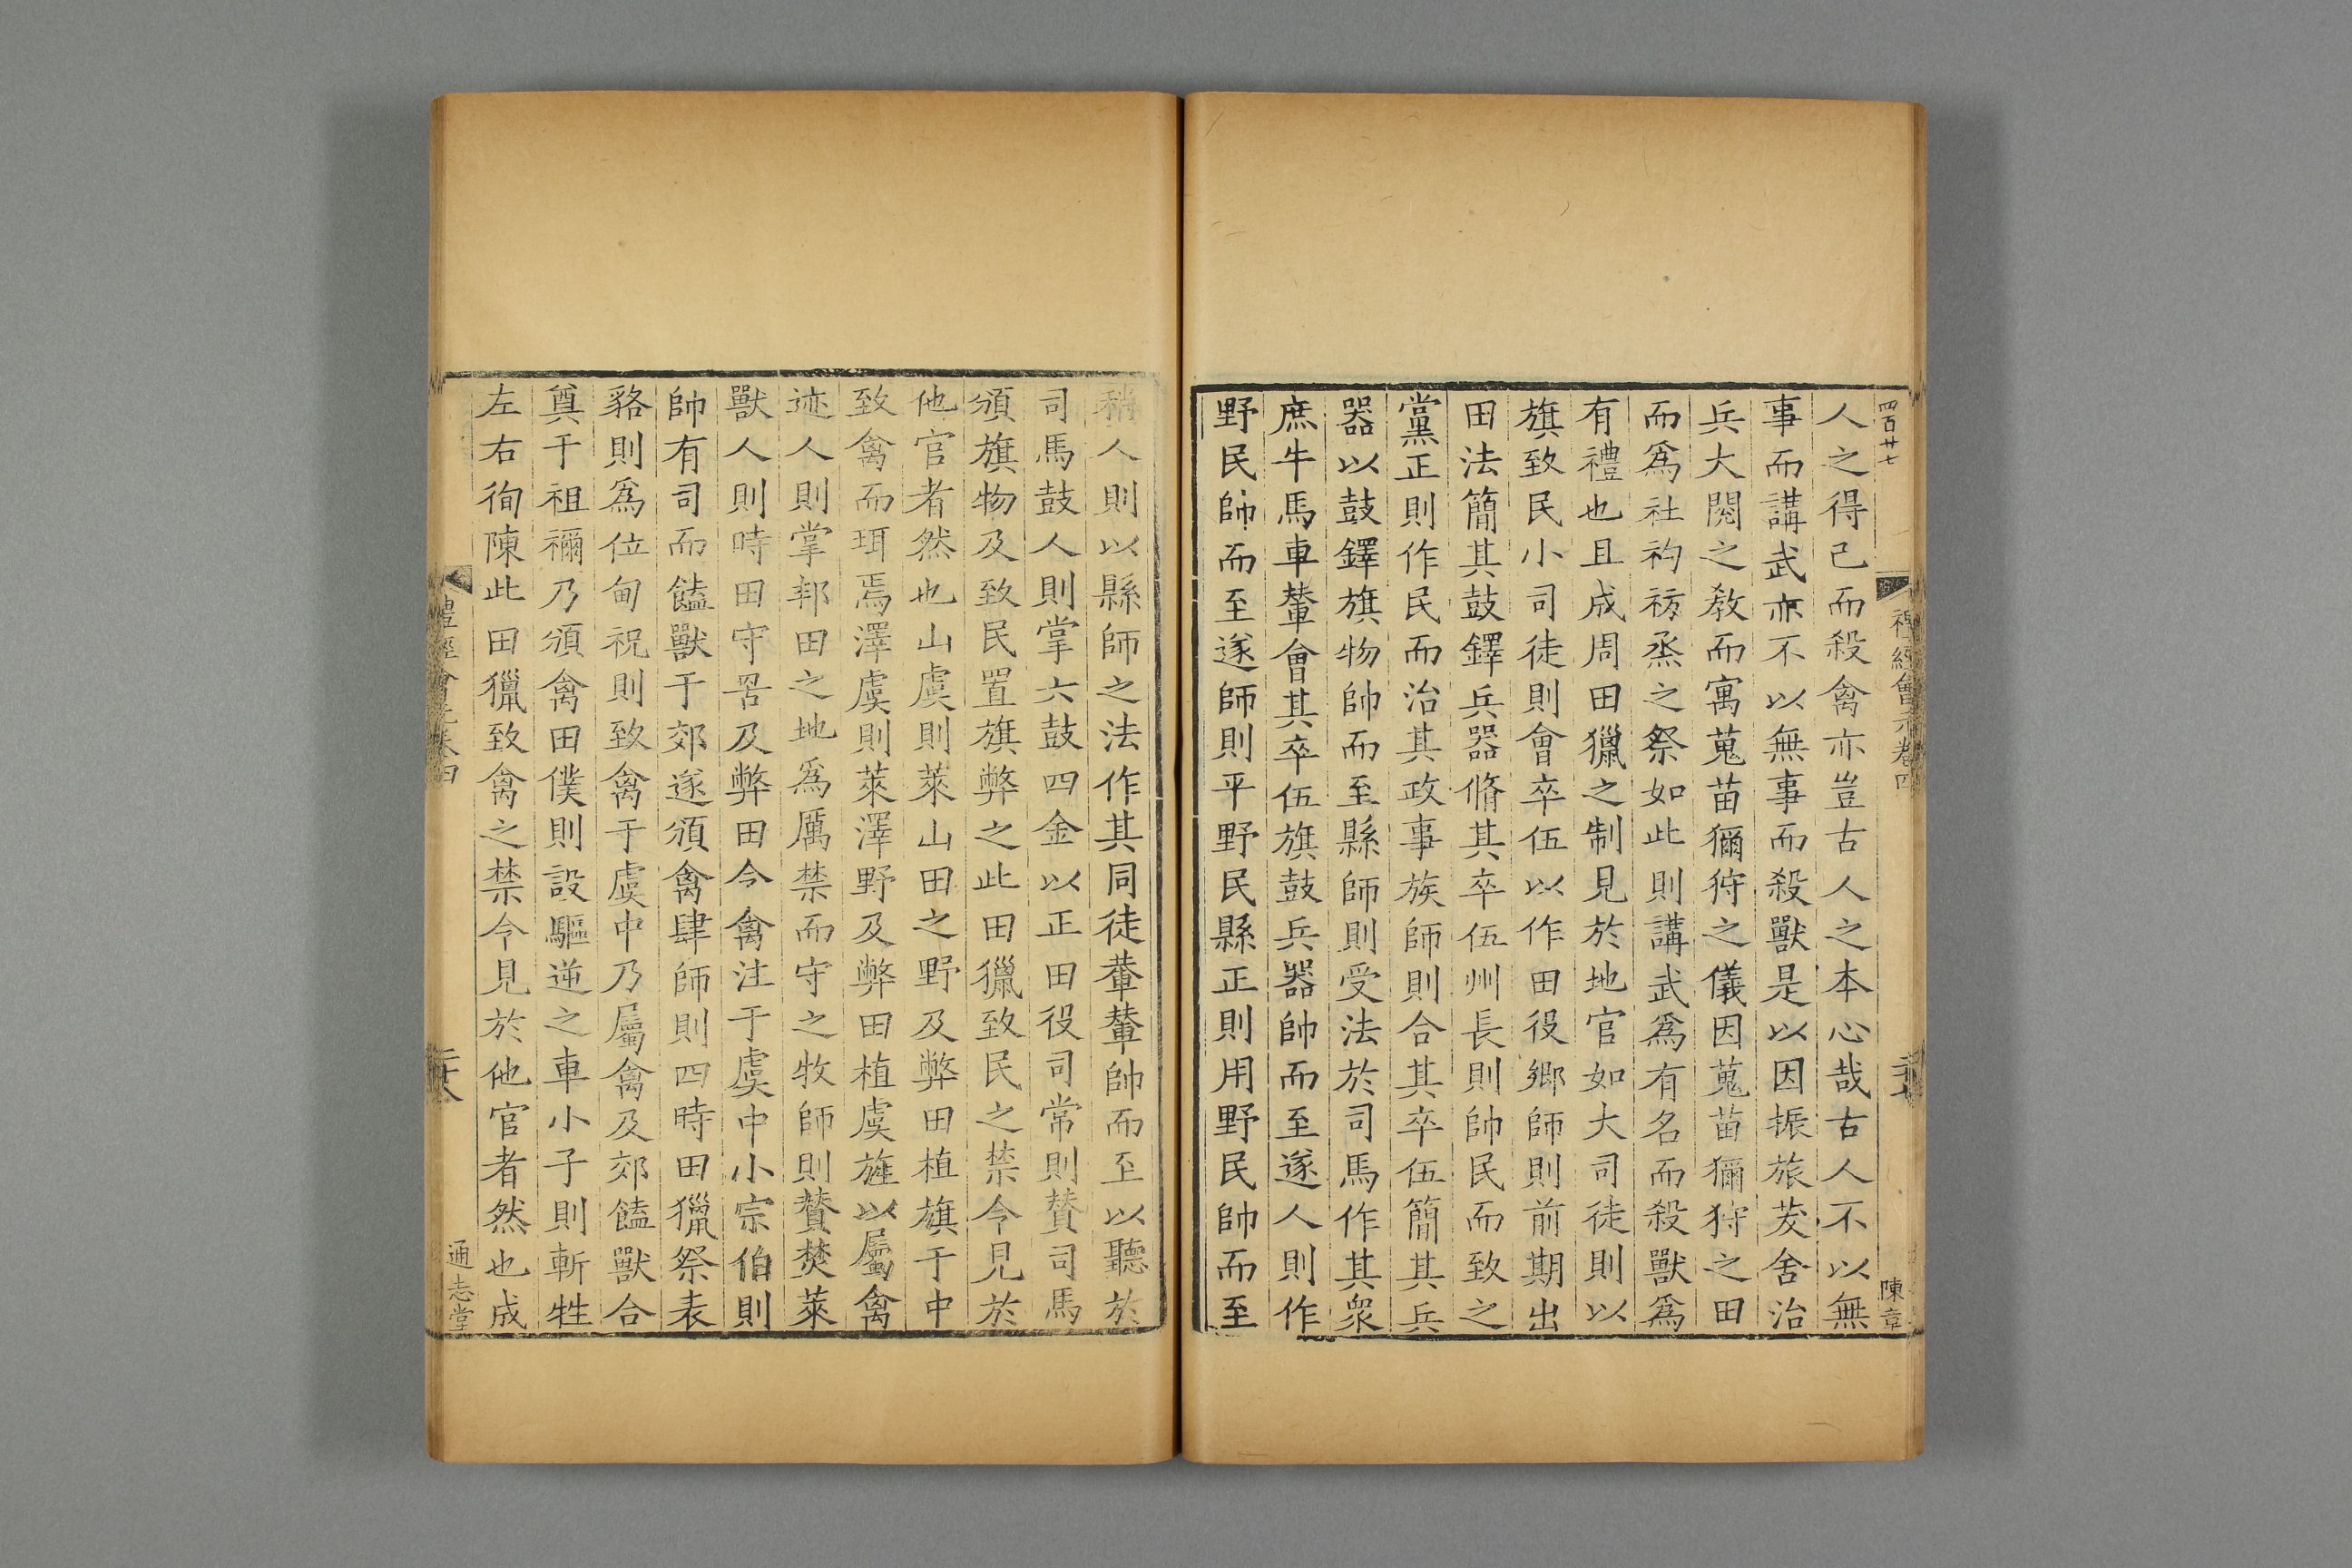 四百廿七
禮經會元卷四
陳章
人之得已而殺禽亦豈古人之本心哉古人不以無
事而講武亦不以無事而殺獸是以因振旅茇舍治
兵大閱之教而寓蒐苗獮狩之儀因蒐苗獮狩之田
而爲社礿祊烝之祭如此則講武爲有名而殺獸爲
有禮也且成周田獵之制見於地官如大司徒則以
旗致民小司徒則會卒伍以作田役鄉師則前期出
田法簡其鼓鐸兵器脩其卒伍州長則帥民而致之
黨正則作民而治其政事族師則合其卒伍簡其兵
器以鼓鐸旗物帥而至縣師則受法於司馬作其衆
庶牛馬車輦會其卒伍旗鼓兵器帥而至遂人則作
野民師而至遂師則平野民縣正則用野民帥而至
稍人則以縣師之法作其同徒輂輦帥而至以聽於
司馬鼓人則掌六鼓四金以正田役司常則贊司馬
頒旗物及致民置旗弊之此田獵致民之禁今見於
他官者然也山虞則萊山田之野及弊田植旗于中
致禽而珥焉澤虞則萊澤野及弊田植虞旌以屬禽
迹人則掌邦田之地爲厲禁而守之牧師則贊焚萊
獸人則時田守罟及弊田令禽注于虞中小宗伯則
帥有司而饁獸于郊遂頒禽肆師則四時田獵祭表
貉則爲位甸祝則致禽于虞中乃屬禽及郊饁獸合
奠于祖禰乃頒禽田僕則設驅逆之車小子則斬牲
左右徇陳此田獵致禽之禁今見於他官者然也成
禮經會元卷四
二十八
通志堂